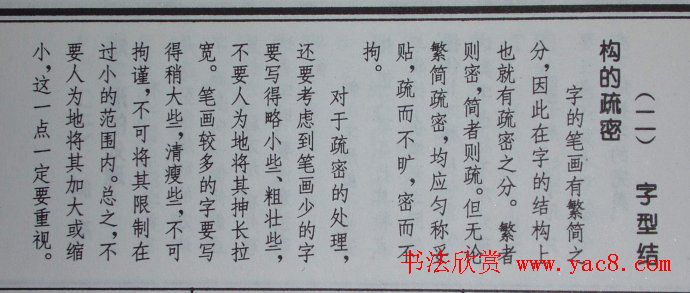 （二） 字型结
构的疏密
字的笔画有繁简之
分，因此在字的结构上
也就有疏密之分。繁者
则密，简者则疏。但无论
繁简疏密，均应匀称妥
贴，疏而不旷，密而不
拘。
对于疏密的处理，
还要考虑到笔画少的字
要写得略小些、粗壮些，
不要人为地将其抻长拉
宽。笔画较多的字要写
得稍大些，清瘦些，不可
拘谨，不可将其限制在
过小的范围内。总之，不
要人为地将其加大或缩
小，这一点一定要重视。
书法欣赏 www.yac8.com